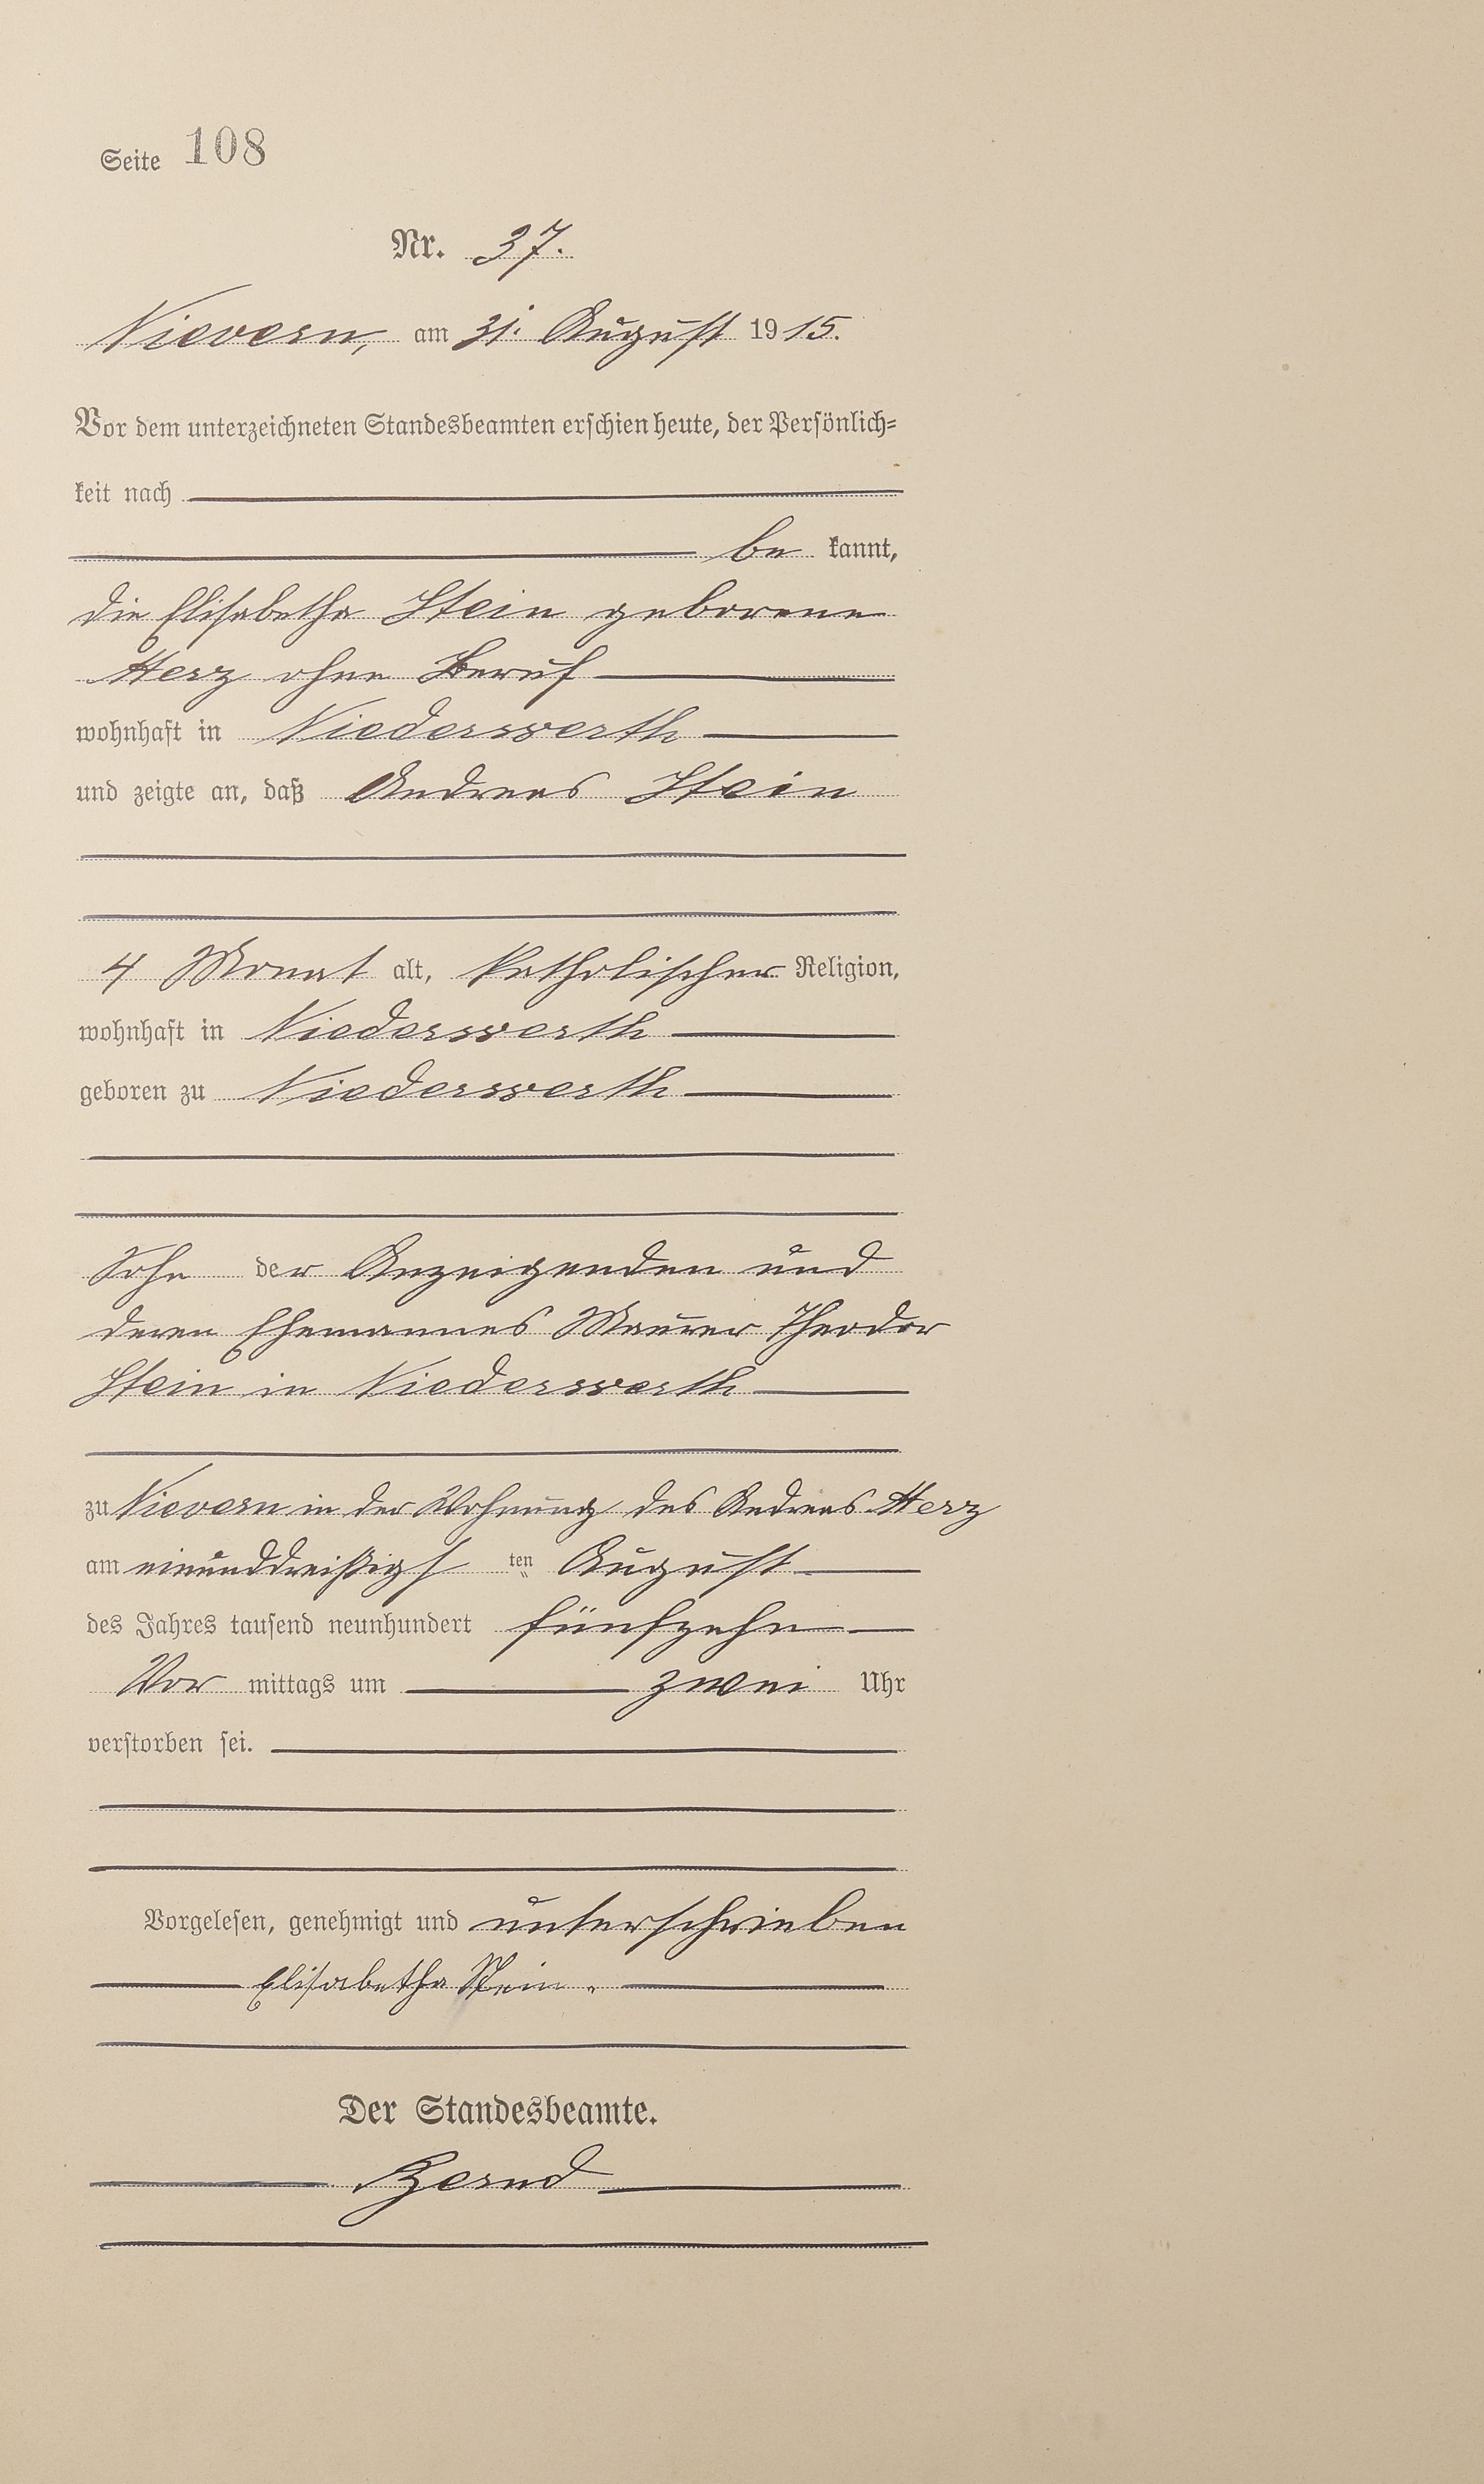 Seite 108
Nr. 37.
Nievern, am 31. August 1915.
Vor dem unterzeichneten Standesbeamten erschien heute, der Persönlich-
keit nach
be kannt,
die Elisabetha Stein geborene
Herz ohne Beruf
wohnhaft in Niederwerth
und zeigte an, daß Andreas Stein
4 Monat alt, katholischer Religion,
wohnhaft in Niederwerth
geboren zu Niederwerth
Sohn der Anzeigenden und
deren Ehemannes Maurer Theodor
Stein in Niederwerth
zu Nievern in der Wohnung des Andreas Herz
am einunddreißigs ten August
des Jahres tausend neunhundert fünfzehn
Vor mittags um zwei Uhr
verstorben sei.
Vorgelesen, genehmigt und unterschrieben
Elisabetha Stein.
Der Standesbeamte.